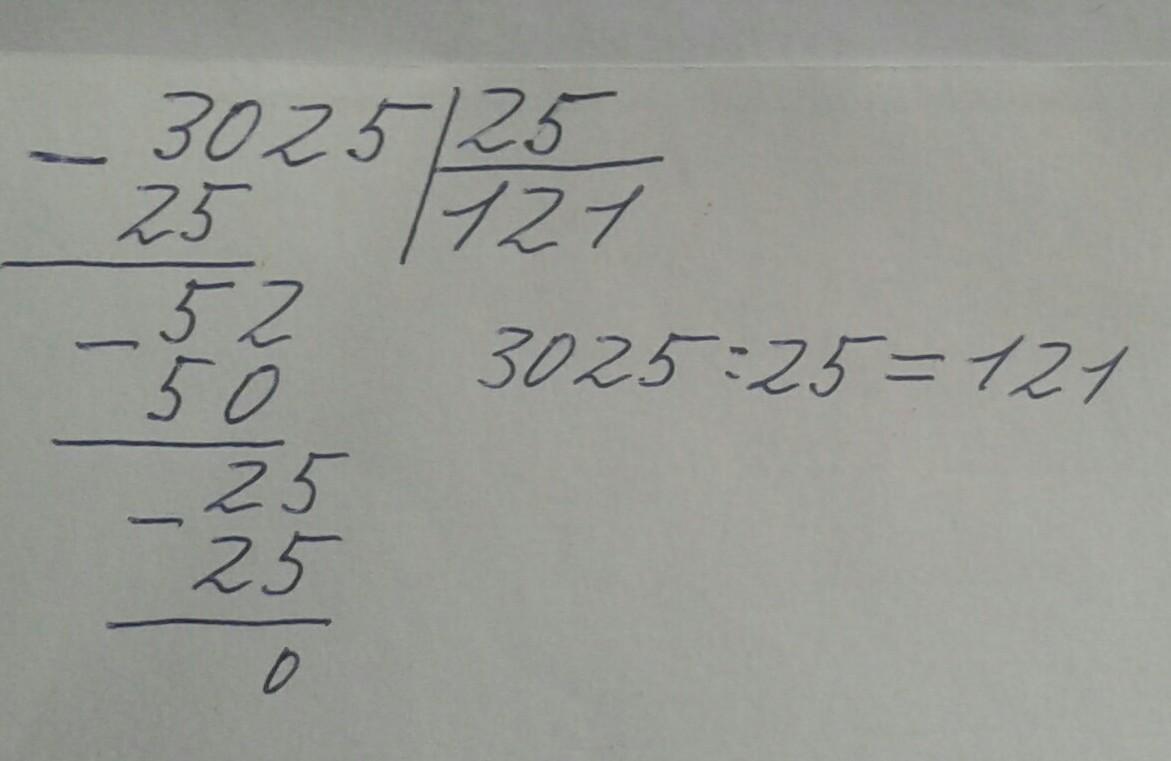 - 3025 | 25
25 | 121
- 52
3025 : 25 = 121
50
- 25
25
0